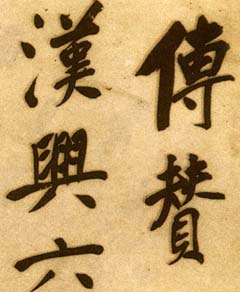 傳贊
漢興六